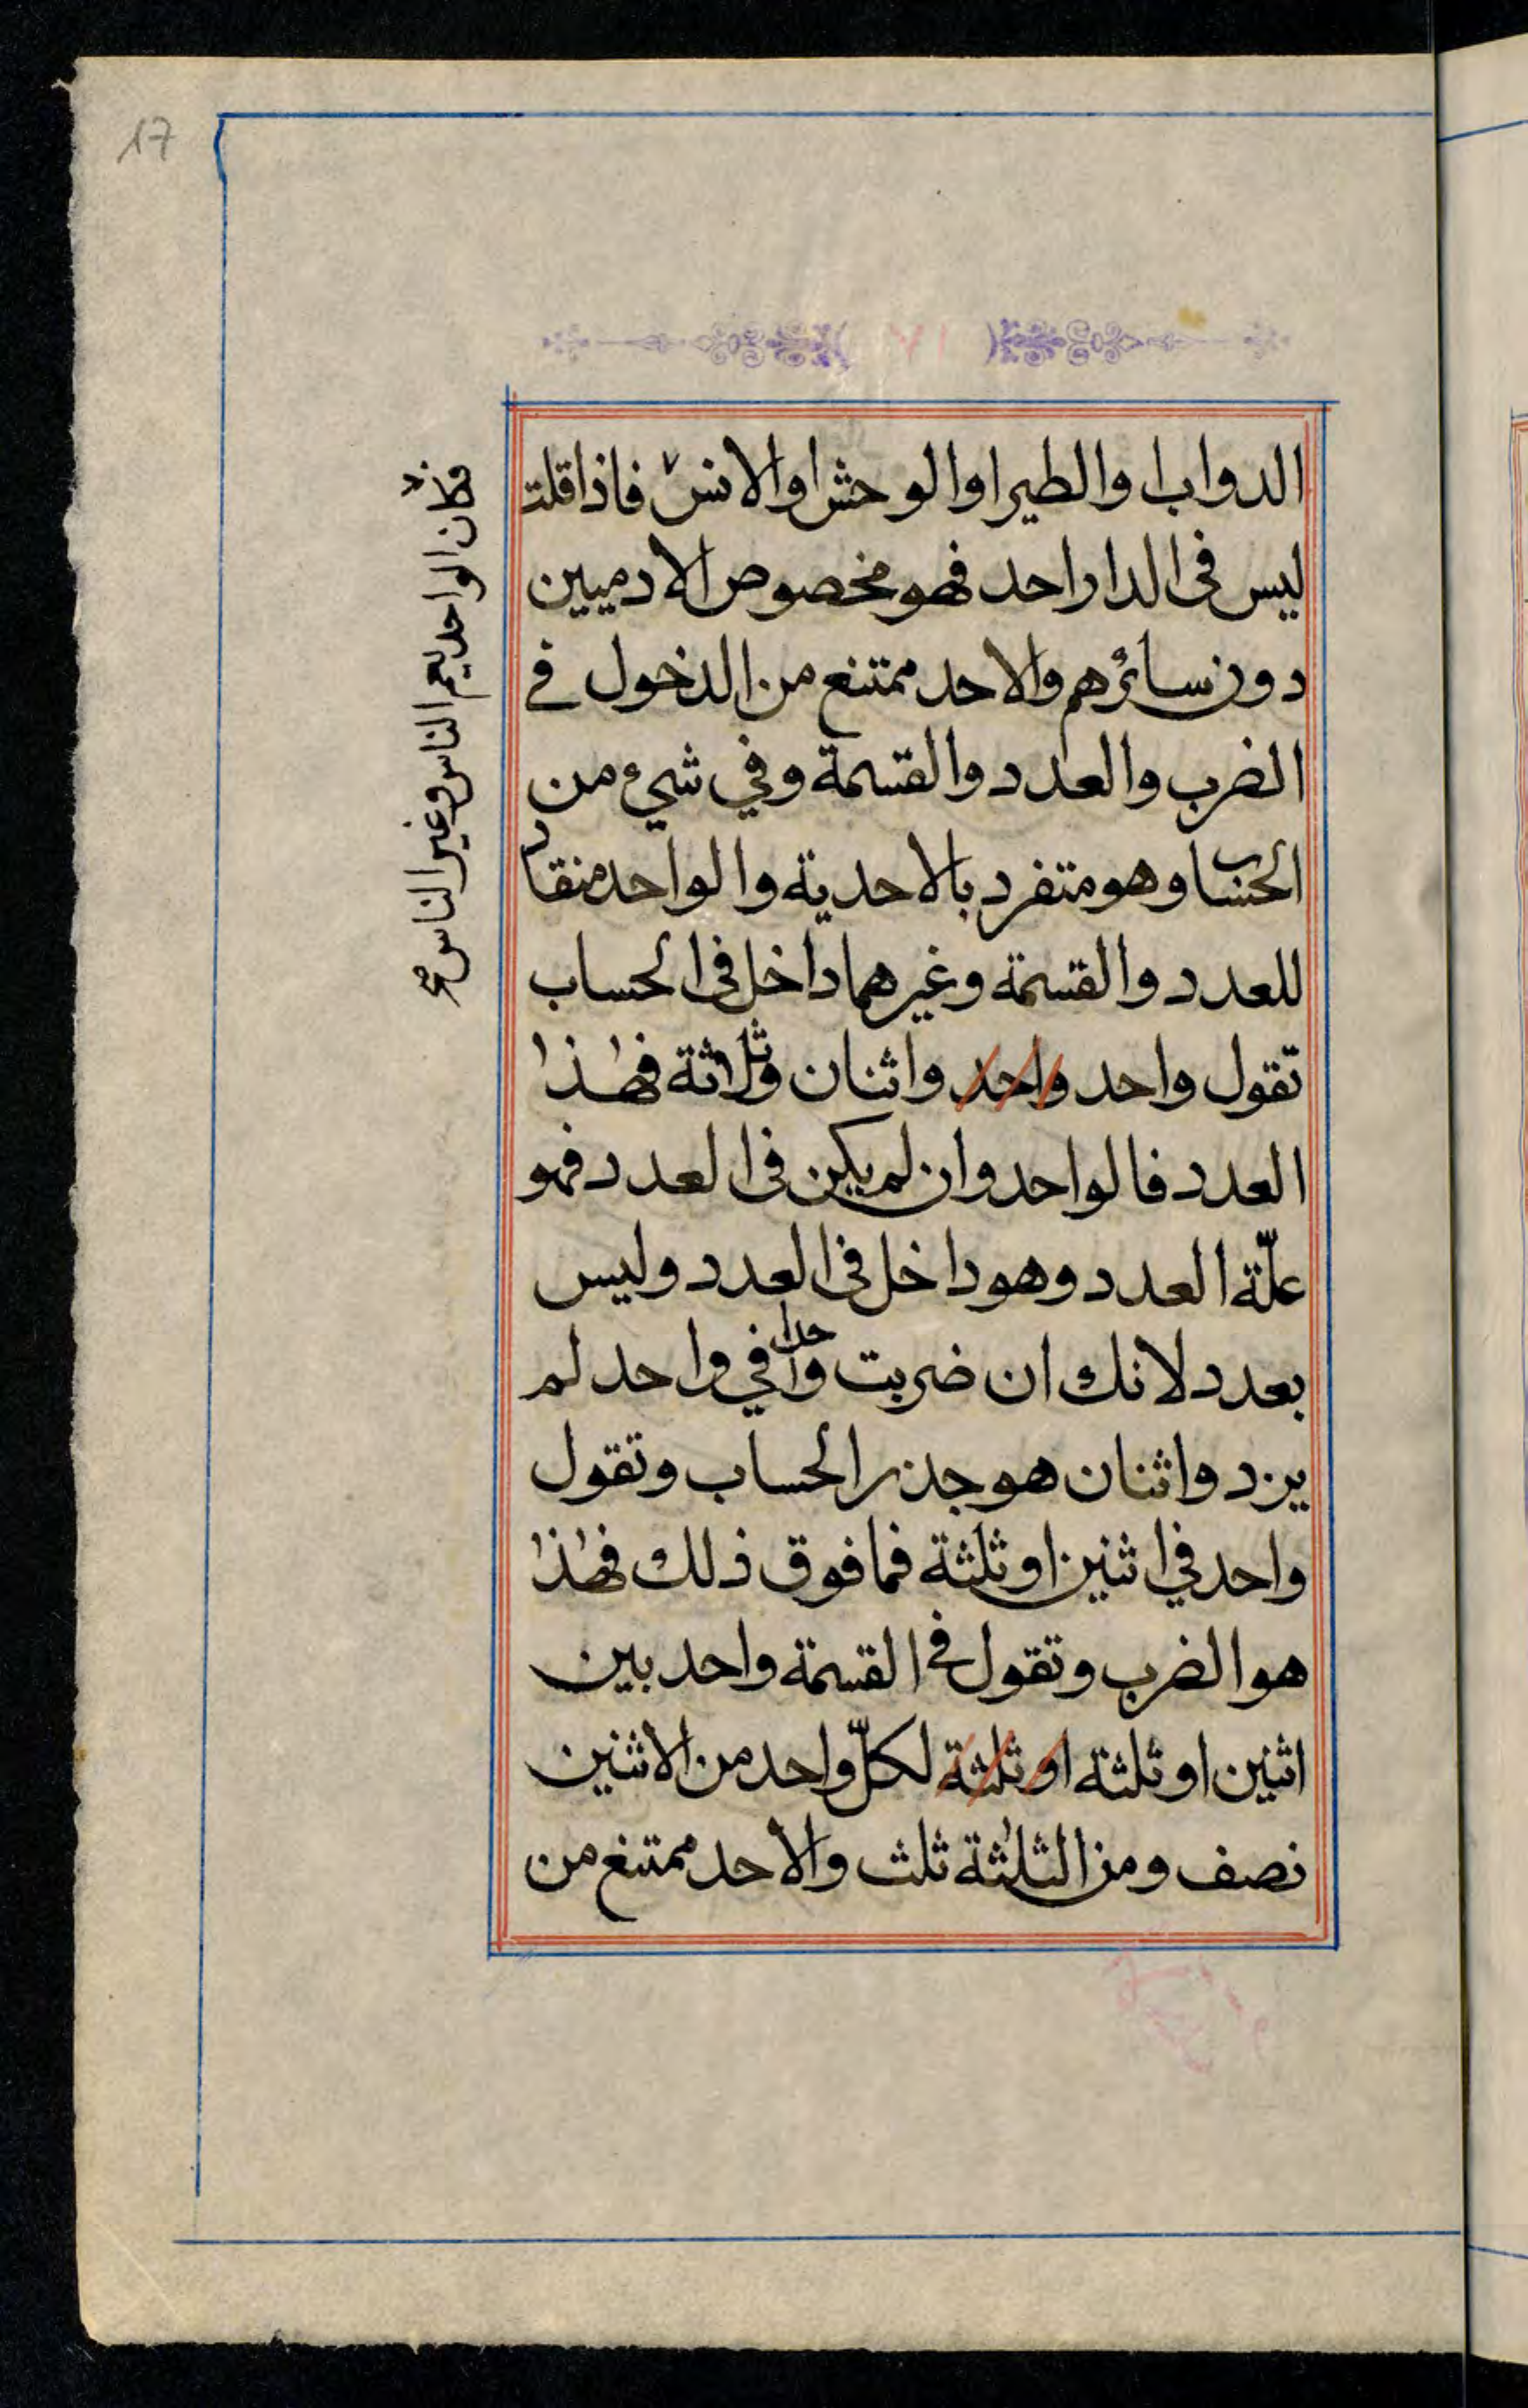 17
٧١
الدواب اوالطير اوالوحش اوالانس فاذا قلت
ليس فى الدار احد فهو مخصوص الادميين
دون سائرهم والاحد ممتنع من الدخول فے
الضرب والعدد والقسمة وفي شيء من
الحساب وهو متفرد بالاحدية والواحد منقاد
للعدد والقسمة وغيرهما داخل فى الحساب
تقول واحد واحد واثنان وثلاثة فهٰذا
العدد فالواحد وان لم يكن فى العدد فهو
علّة العدد وهو داخل فى العدد وليس
بعدد لانك ان ضربت واحدا في واحد لم
يزد واثنان هو جذر الحساب وتقول
واحد في اثنين او ثلثة فما فوق ذلك فهٰذا
هو الضرب وتقول فے القسمة واحد بين
اثنين او ثلثة او ثلثة لكلّ واحد من الاثنين
نصف ومن الثلٰثة ثلث والاحد ممتنع من
فكان الواحد يعم الناس وغير الناس